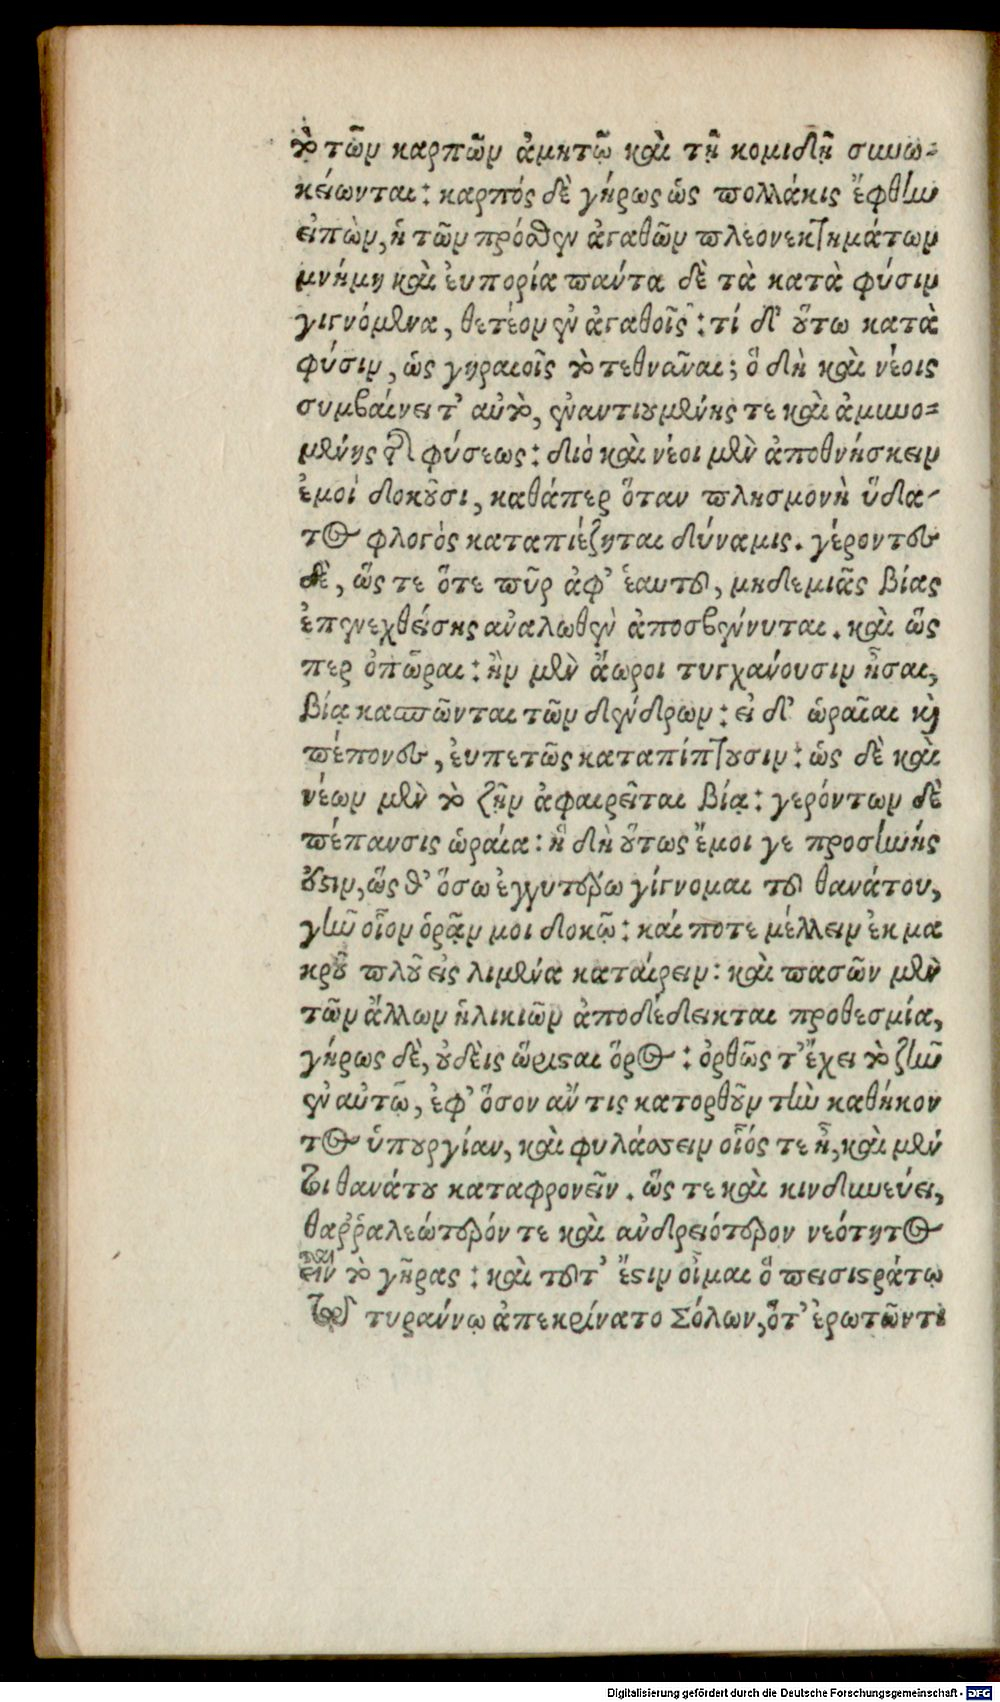 τὸ τῶν καρπῶν ἀμητῷ καὶ τῇ κομιδῇ συνῳ-
κείωνται: καρπός δὲ γήρως ὡς πολλάκις ἔφθην
εἰπὼν, ἡ τῶν πρόσθεν ἀγαθῶν πλεονεκτημάτων
μνήμη καὶ ἐυπορία πάντα δὲ τὰ κατὰ φύσιν
γιγνόμενα, θετέον ἐν ἀγαθοῖς: τί δ' οὕτω κατὰ
φύσιν, ὡς γηραιοῖς τὸ τεθνᾶναι; ὃ δὴ καὶ νέοις
συμβαίνει τ' αὐτὸ, ἐναντιουμένης τε καὶ ἀμυνο-
μένης τῆς φύσεως: διὸ καὶ νέοι μὲν ἀποθνήσκειν
ἐμοὶ δοκοῦσι, καθάπερ ὅταν πλησμονὴ ὕδα-
τος φλογὸς καταπιέζηται δύναμις. γέροντες
δὲ, ὥς τε ὅτε πῦρ ἀφ' ἑαυτοῦ, μηδεμιᾶς βίας
ἐπενεχθείσης ἀναλωθὲν ἀποσβέννυται. καὶ ὥς
περ ὀπῶραι: ἢν μὲν ἄωροι τυγχάνουσιν ἦσαι,
βίᾳ κασπῶνται τῶν δένδρων: εἰ δ' ὡραῖαι καὶ
πέπονες, ἐυπετῶς καταπίπτουσιν: ὡς δὲ καὶ
νέων μὲν τὸ ζῇν ἀφαιρεῖται βίᾳ: γερόντων δὲ
πέπανσις ὡραία: ἣ δὴ οὕτως ἔμοι γε προσηνής
οὖστιν, ὥς θ' ὅσω ἐγγυτέρω γίγνομαι τοῦ θανάτου,
γῆν οἷον ὁρᾷν μοι δοκῷ: καί ποτε μέλλειν ἐκ μα
κροῦ πλοῦ εἰς λιμένα κατάιρειν: καὶ πασῶν μὲν
τῶν ἄλλων ἡλικιῶν ἀποδέδεικται προθεσμία,
γήρως δὲ, οὐδεὶς ὥρισται ὅρος: ὀρθῶς τ' ἔχει τὸ ζῆν
ἐν αὐτῷ, ἐφ' ὅσον ἄν τις κατορθοῦν τὴν καθήκον
τος ὑπουργίαν, καὶ φυλάσσειν οἷός τε ᾖ, καὶ μέν
τοι θανάτου καταφρονεῖν. ὥς τε καὶ κινδυνεύει,
θαῤῥαλεώτερόν τε καὶ ἀνδρειότερον νεότητος
εἶναι τὸ γῆρας: καὶ τοῦτ' ἔστιν οἶμαι ὃ πεισιστράτῳ
τῷ τυράννῳ ἀπεκρίνατο Σόλων, ὅτ' ἐρωτῶντι
Digitalisierung gefördert durch die Deutsche Forschungsgemeinschaft - DFG